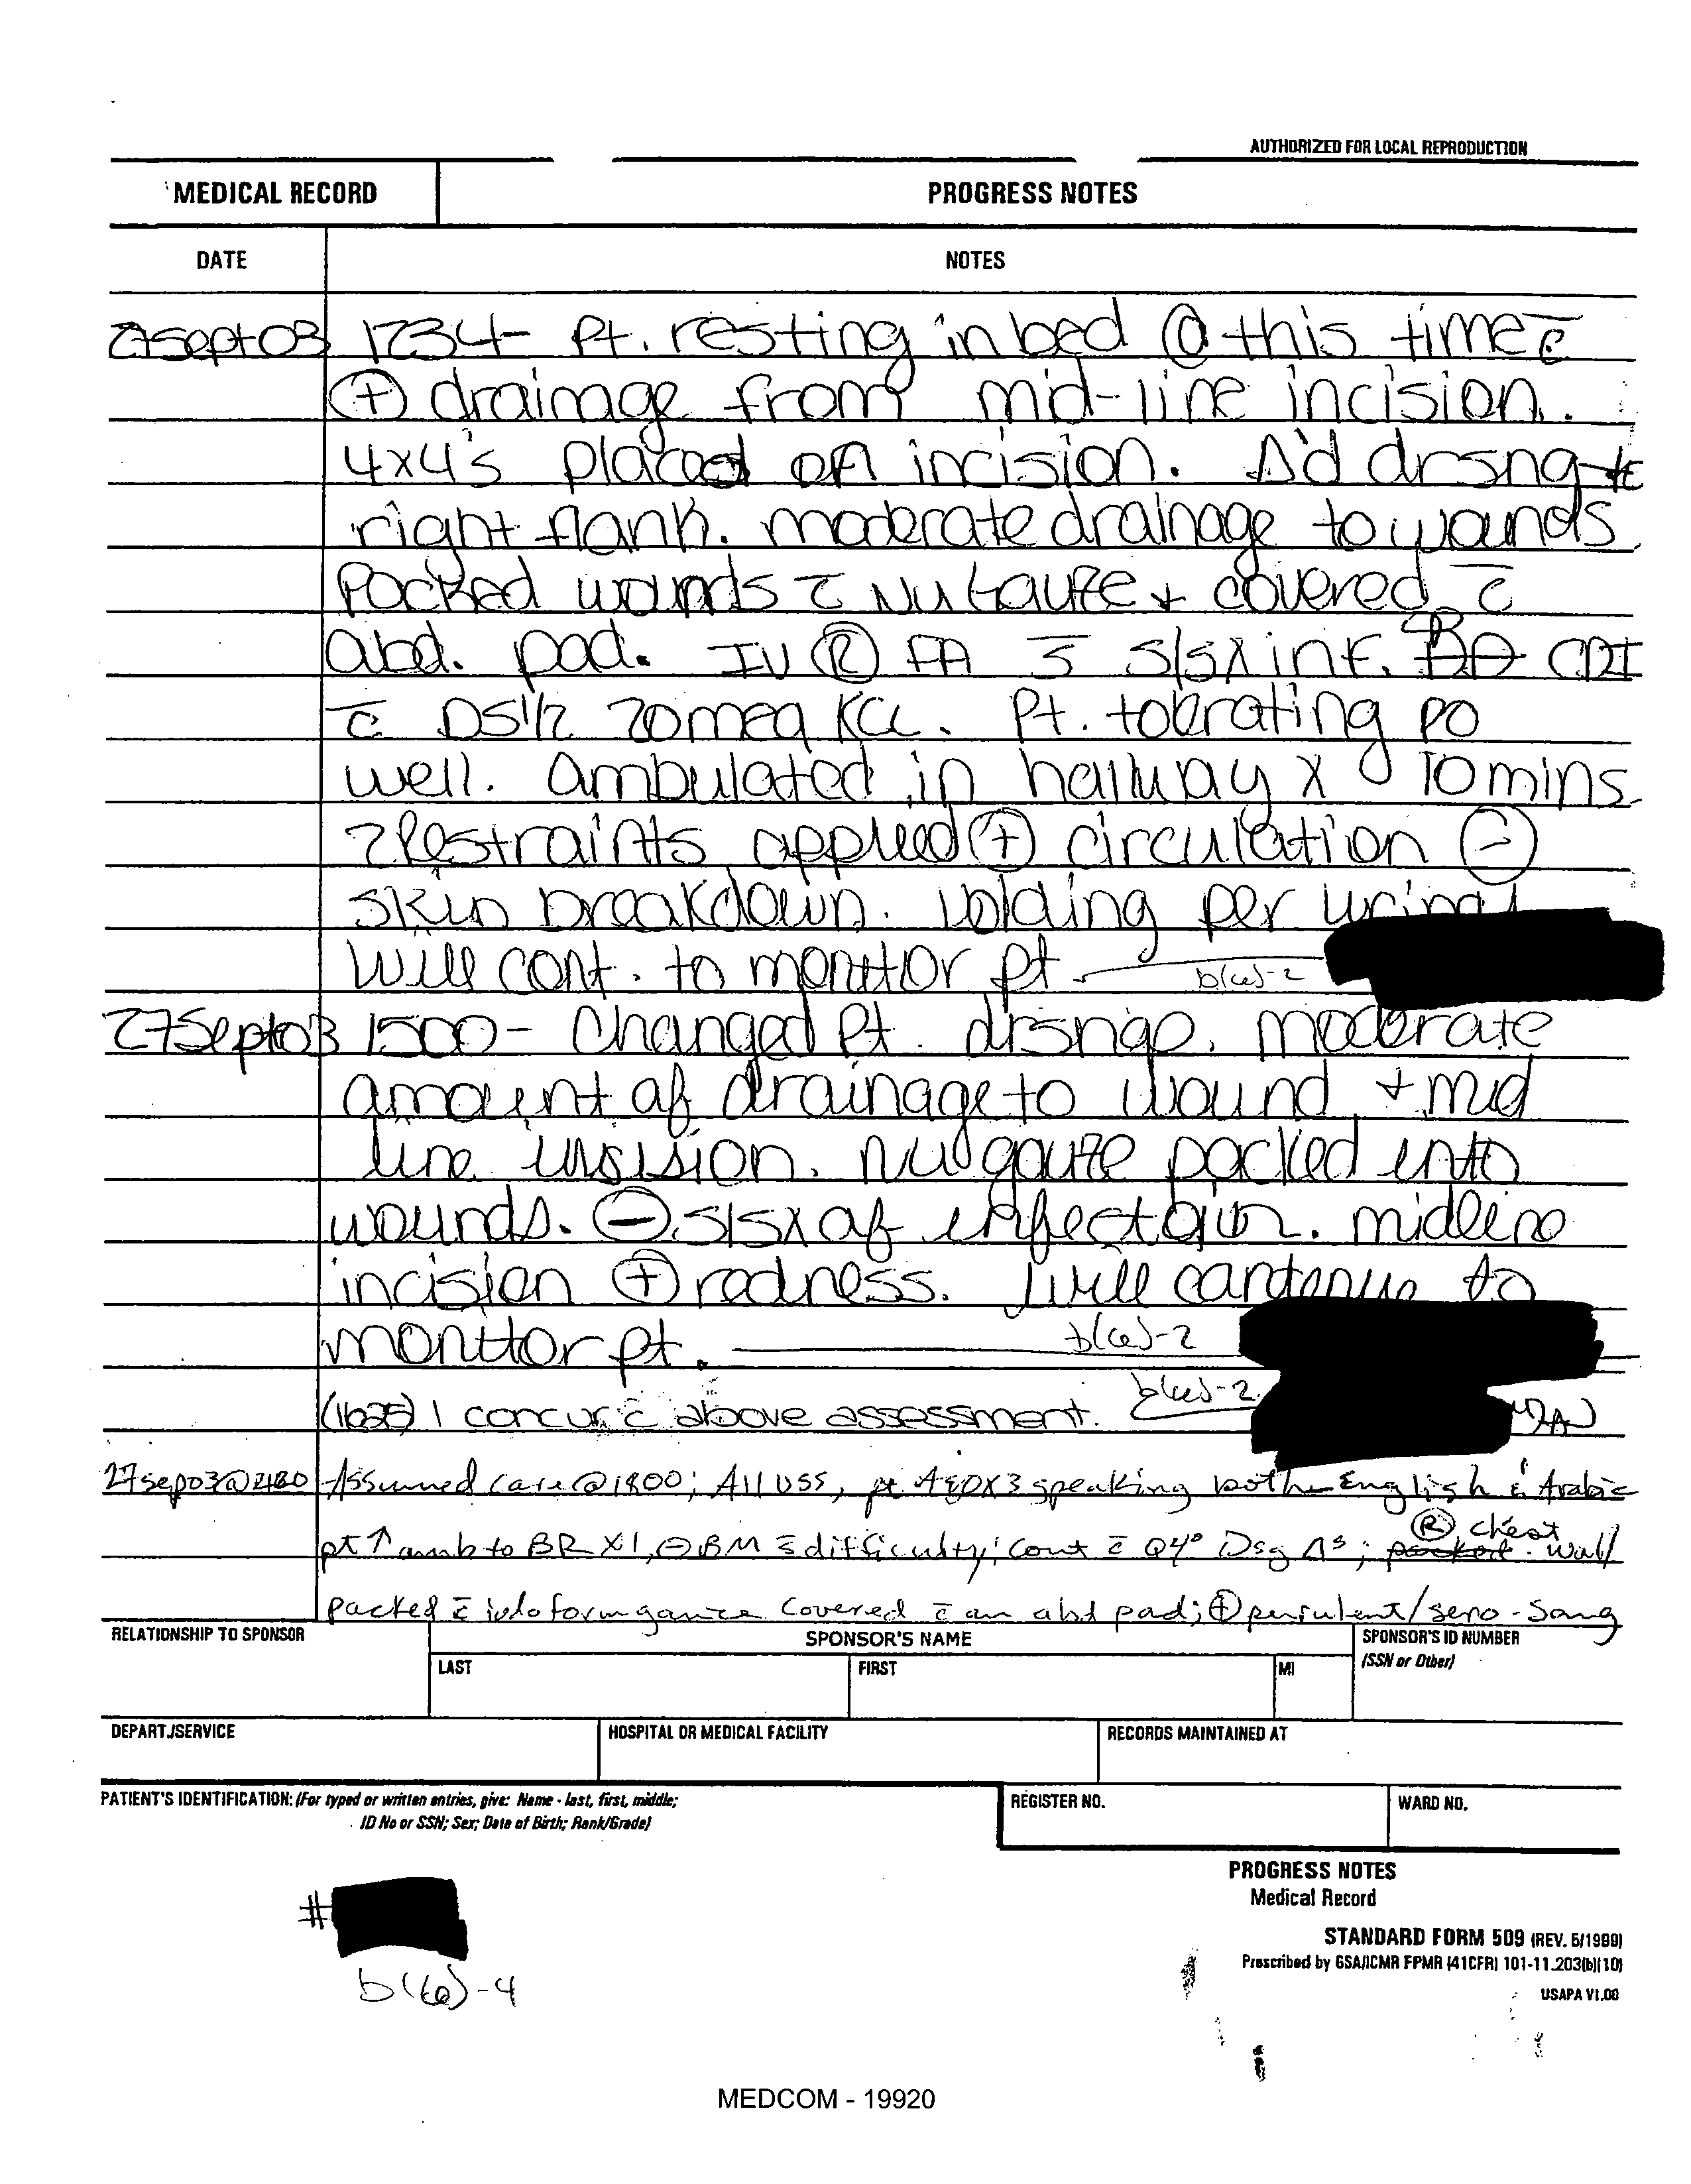 AUTHORIZED FOR LOCAL REPRODUCTION
MEDICAL RECORD PROGRESS NOTES
DATE NOTES
27Sept03 1734- Pt. resting in bed @ this time c̄
⊕ drainage from mid-line incision.
4x4's placed on incision. Δ'd drsng to
right flank. moderate drainage to wounds
Packed wounds c̄ Nu Gauze + covered c̄
abd. pad. IV Ⓡ FA s̄ s/sx inf. CDI
c̄ D5 1/2 20meq KCL. Pt. tolerating po
well. Ambulated in hallway x 10 mins
2 Restraints applied ⊕ circulation ⊖
skin breakdown. Voiding per urinal
Will cont. to monitor pt b(6)-2
27Sept03 1500- Changed Pt. drsnge. moderate
amount of drainage to wound + mid
line insision. nu gauze packed into
wounds. ⊖ s/sx of infection. midline
incision ⊕ redness. Will contenue to
monitor pt. b(6)-2
(1625) I concur c̄ above assessment. b(6)-2
27sep03@2130 Assumed care @1800; All VSS, pt A&OX3 speaking both English & Arabic
pt ↑ amb to BR X1, ⊖ BM s̄ difficulty; Cont c̄ Q4° Dsg Δs; packed Ⓡ chest wall
packed c̄ iodoform gauze covered c̄ an abd pad; ⊕ purulent/sero-sang
RELATIONSHIP TO SPONSOR SPONSOR'S NAME SPONSOR'S ID NUMBER
(SSN or Other)
LAST FIRST MI
DEPART./SERVICE HOSPITAL OR MEDICAL FACILITY RECORDS MAINTAINED AT
PATIENT'S IDENTIFICATION: (For typed or written entries, give: Name - last, first, middle;
ID No or SSN; Sex; Date of Birth; Rank/Grade)
REGISTER NO. WARD NO.
PROGRESS NOTES
Medical Record
#
b(6)-4
STANDARD FORM 509 (REV. 5/1999)
Prescribed by GSA/ICMR FPMR (41CFR) 101-11.203(b)(10)
USAPA V1.00
MEDCOM - 19920